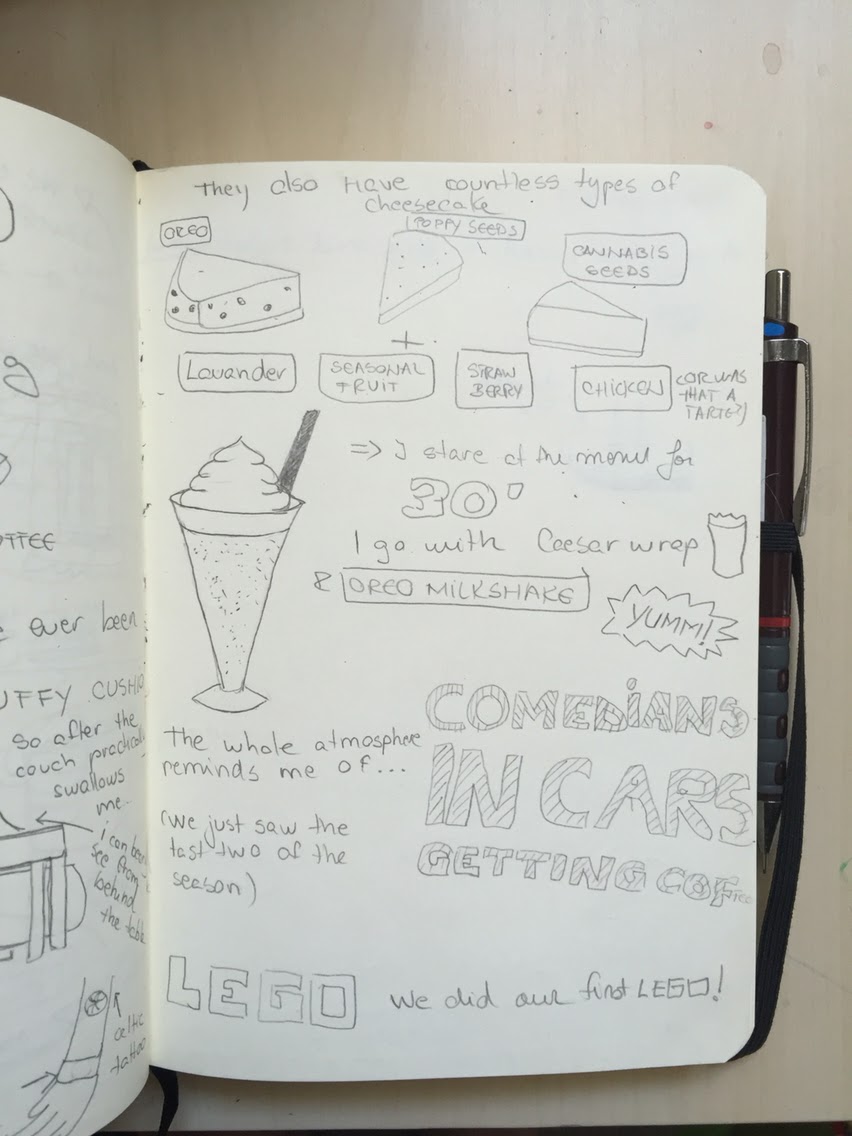 OFFEE
ever been
UFFY CUSH
so after the
couch practical
swallows
me..
i can bee
see from
behind
the table
celtic
tattoo
They also Have countless types of
cheesecake
OREO
POPPY SEEDS
CANNABIS
SEEDS
+
Lavander
SEASONAL
FRUIT
STRAW
BERRY
CHICKEN
(OR WAS
THAT A
TARTE?)
=> I stare at the menu for
30'
I go with Caesar wrap
& OREO MILKSHAKE
YUMM!
The whole atmosphere
reminds me of...
COMEDIANS
IN CARS
GETTING COFFEE
(we just saw the
last two of the
season)
LEGO we did our first LEGO!